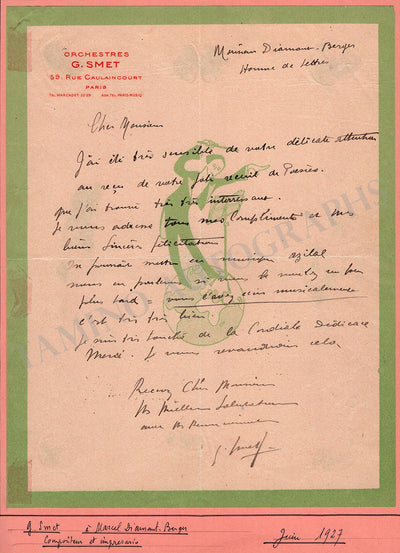 ORCHESTRES
G. SMET
59. RUE CAULAINCOURT
PARIS
TEL MARCADET 22-29 ADR. TEL. PARIS-MUSIQ
Monsieur Diamant-Berger
Homme de lettres
Cher Monsieur
J'ai été très sensible de votre délicate attention
au reçu de votre joli recueil de Poésies
que j'ai trouvé très très interressant.
Je vous adresse tous mes compliments et mes
biens sincères félicitations
On pourrait mettre en musique
nous en parlerons si vous le voulez un peu
plus tard vous l'avez musicalement
c'est très très bien
Je suis très touché de la Cordiale Dédicace
Merci. Je vous revaudrai cela
Recevez Cher Monsieur
Mes Meilleures Salutations
avec Mes Remerciements
G Smet
TAMINO AUTOGRAPHS
G Smet à Marcel Diamant-Berger
Compositeur et impresario
Juin 1927